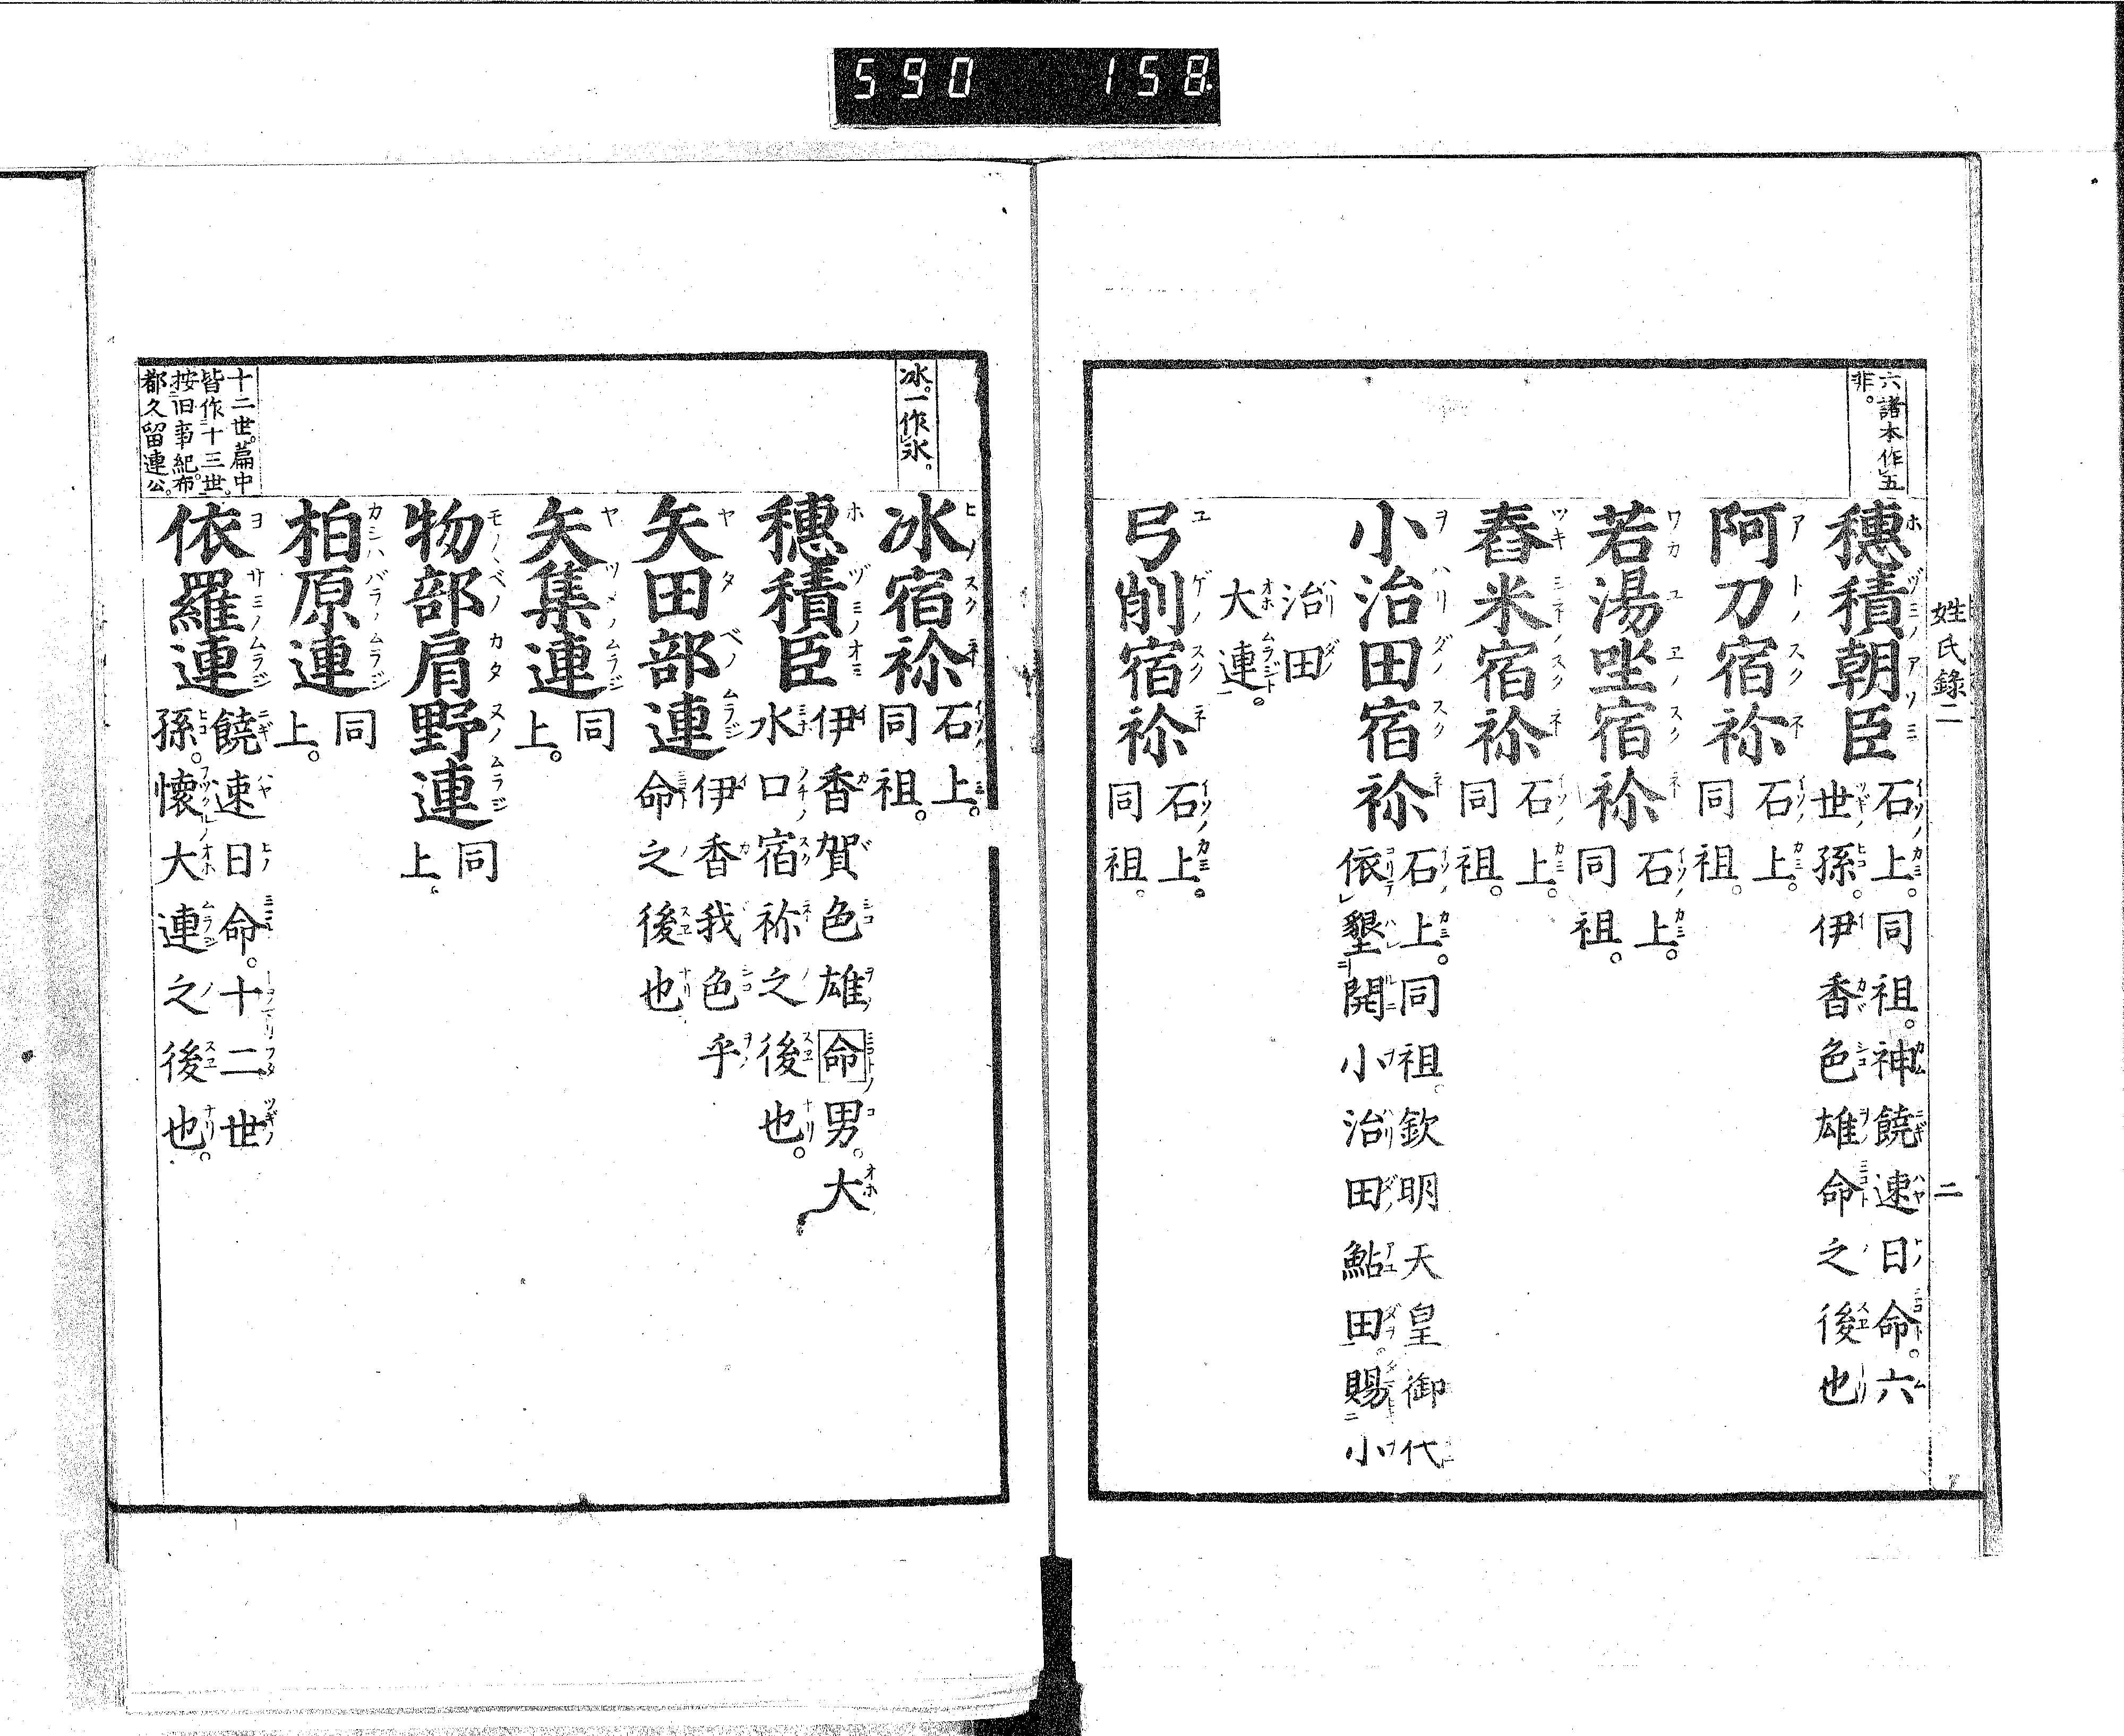 590 158
姓氏錄二
二
六諸本作五
非。
穗積朝臣
石上。同祖。神饒速日命。六
世孫。伊香色雄命之後也
阿刀宿祢
石上。
同祖。
若湯坐宿祢
石上。
同祖。
舂米宿祢
石上。
同祖。
小治田宿祢
石上。同祖。欽明天皇御代
依墾開小治田鮎田。賜小
治田
大連。
弓削宿祢
石上。
同祖。
氷。一作水。
氷宿祢
石上。
同祖。
穗積臣
伊香賀色雄命男。大
水口宿祢之後也。
矢田部連
伊香我色乎
命之後也
矢集連
同
上。
物部肩野連
同
上。
柏原連
同
上。
十二世。篇中
皆作十三世。
按旧事紀。布
都久留連公。
依羅連
饒速日命。十二世
孫。懷大連之後也。